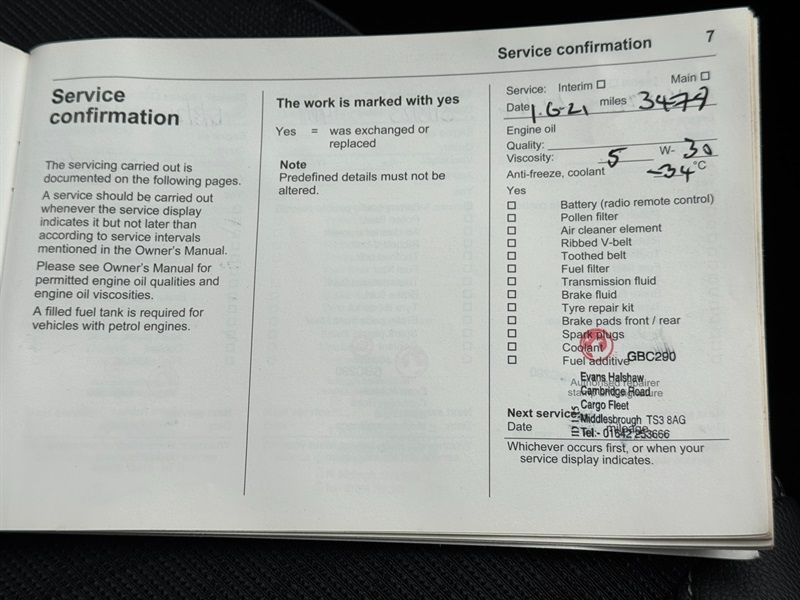 Service confirmation 7
Service
confirmation
The servicing carried out is
documented on the following pages.
A service should be carried out
whenever the service display
indicates it but not later than
according to service intervals
mentioned in the Owner's Manual.
Please see Owner's Manual for
permitted engine oil qualities and
engine oil viscosities.
A filled fuel tank is required for
vehicles with petrol engines.
The work is marked with yes
Yes = was exchanged or
replaced
Note
Predefined details must not be
altered.
Service: Interim Main
Date 1.6.21 miles 3477
Engine oil
Quality:
Viscosity: 5 W- 30
Anti-freeze, coolant -34 °C
Yes
Battery (radio remote control)
Pollen filter
Air cleaner element
Ribbed V-belt
Toothed belt
Fuel filter
Transmission fluid
Brake fluid
Tyre repair kit
Brake pads front / rear
Spark plugs
Coolant
Fuel additive GBC290
Evans Halshaw
Authorised repairer
Cambridge Road
stamp signature
Cargo Fleet
Next service:
Middlesbrough TS3 8AG
Date mileage
Tel:- 01642 253666
Whichever occurs first, or when your
service display indicates.